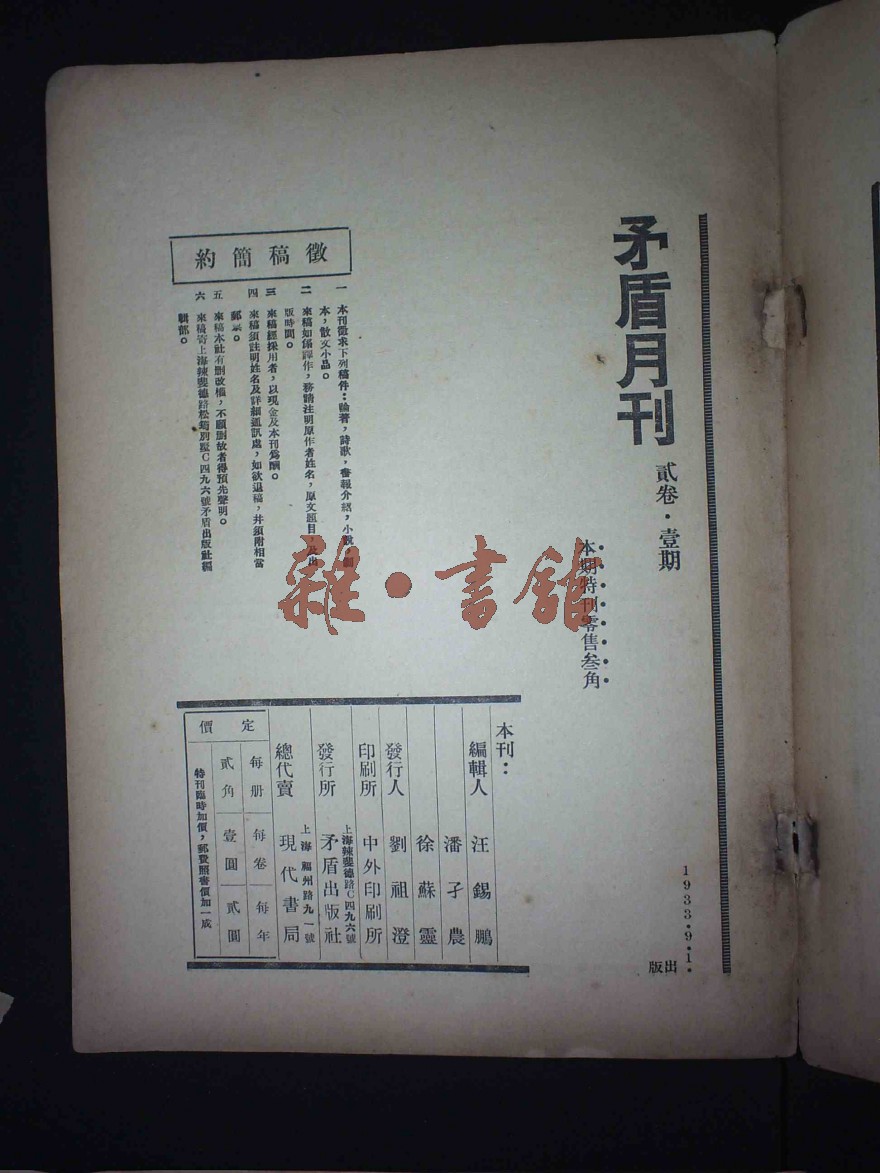 矛盾月刊
貳卷・壹期
本期特刊零售叁角
1933・9・1・
出版
徵稿簡約
一 本刊徵求下列稿件：論著，詩歌，書報介紹，小說，劇
本，散文小品。
二 來稿如係譯作，務請注明原作者姓名，原文題目，及出
版時間。
三 來稿經採用者，以現金及本刊爲酬。
四 來稿須註明姓名及詳細通訊處，如欲退稿，并須附相當
郵票。
五 來稿本社有刪改權，不願刪改者得預先聲明。
六 來稿寄上海辣斐德路松筠別墅C四九六號矛盾出版社編
輯部。
本刊：
編輯人 汪錫鵬
潘孑農
徐蘇靈
發行人 劉祖澄
印刷所 中外印刷所
發行所 上海辣斐德路C四九六號
矛盾出版社
總代賣 上海福州路九一號
現代書局
定價
每册 每卷 每年
貳角 壹圓 貳圓
特刊臨時加價，郵費照書價加一成
雜・書館